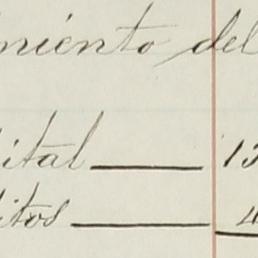 miento del
ital 13
itos 4